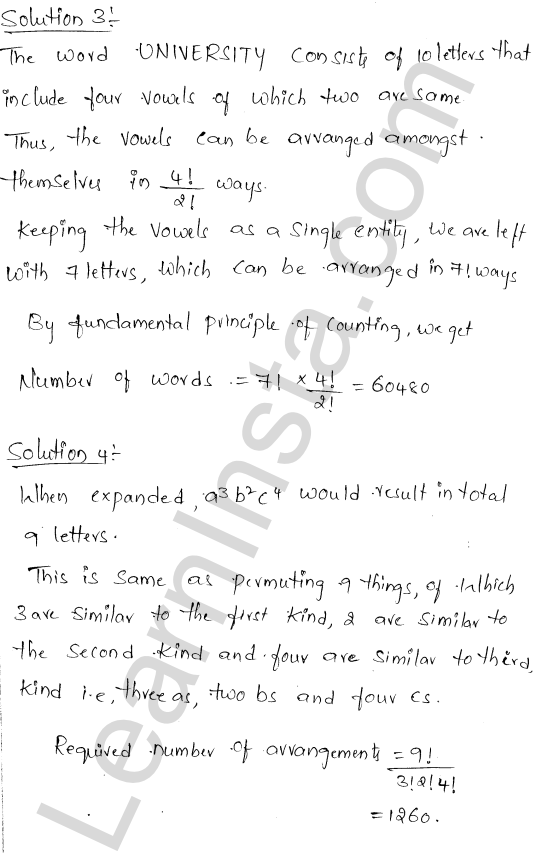 Solution 3:-
The word UNIVERSITY consists of 10 letters that
include four vowels of which two are same
Thus, the vowels can be arranged amongst
themselves in 4!/2! ways.
Keeping the vowels as a single entity, we are left
with 7 letters, which can be arranged in 7! ways
By fundamental principle of counting, we get
Number of words = 7! × 4!/2! = 60480
Solution 4:-
When expanded, a³b²c⁴ would result in total
9 letters.
This is same as permuting 9 things, of which
3 are similar to the first kind, 2 are similar to
the second kind and four are similar to third,
kind i.e, three as, two bs and four cs.
Required number of arrangements = 9!/3!2!4!
= 1260.
LearnInsta.com